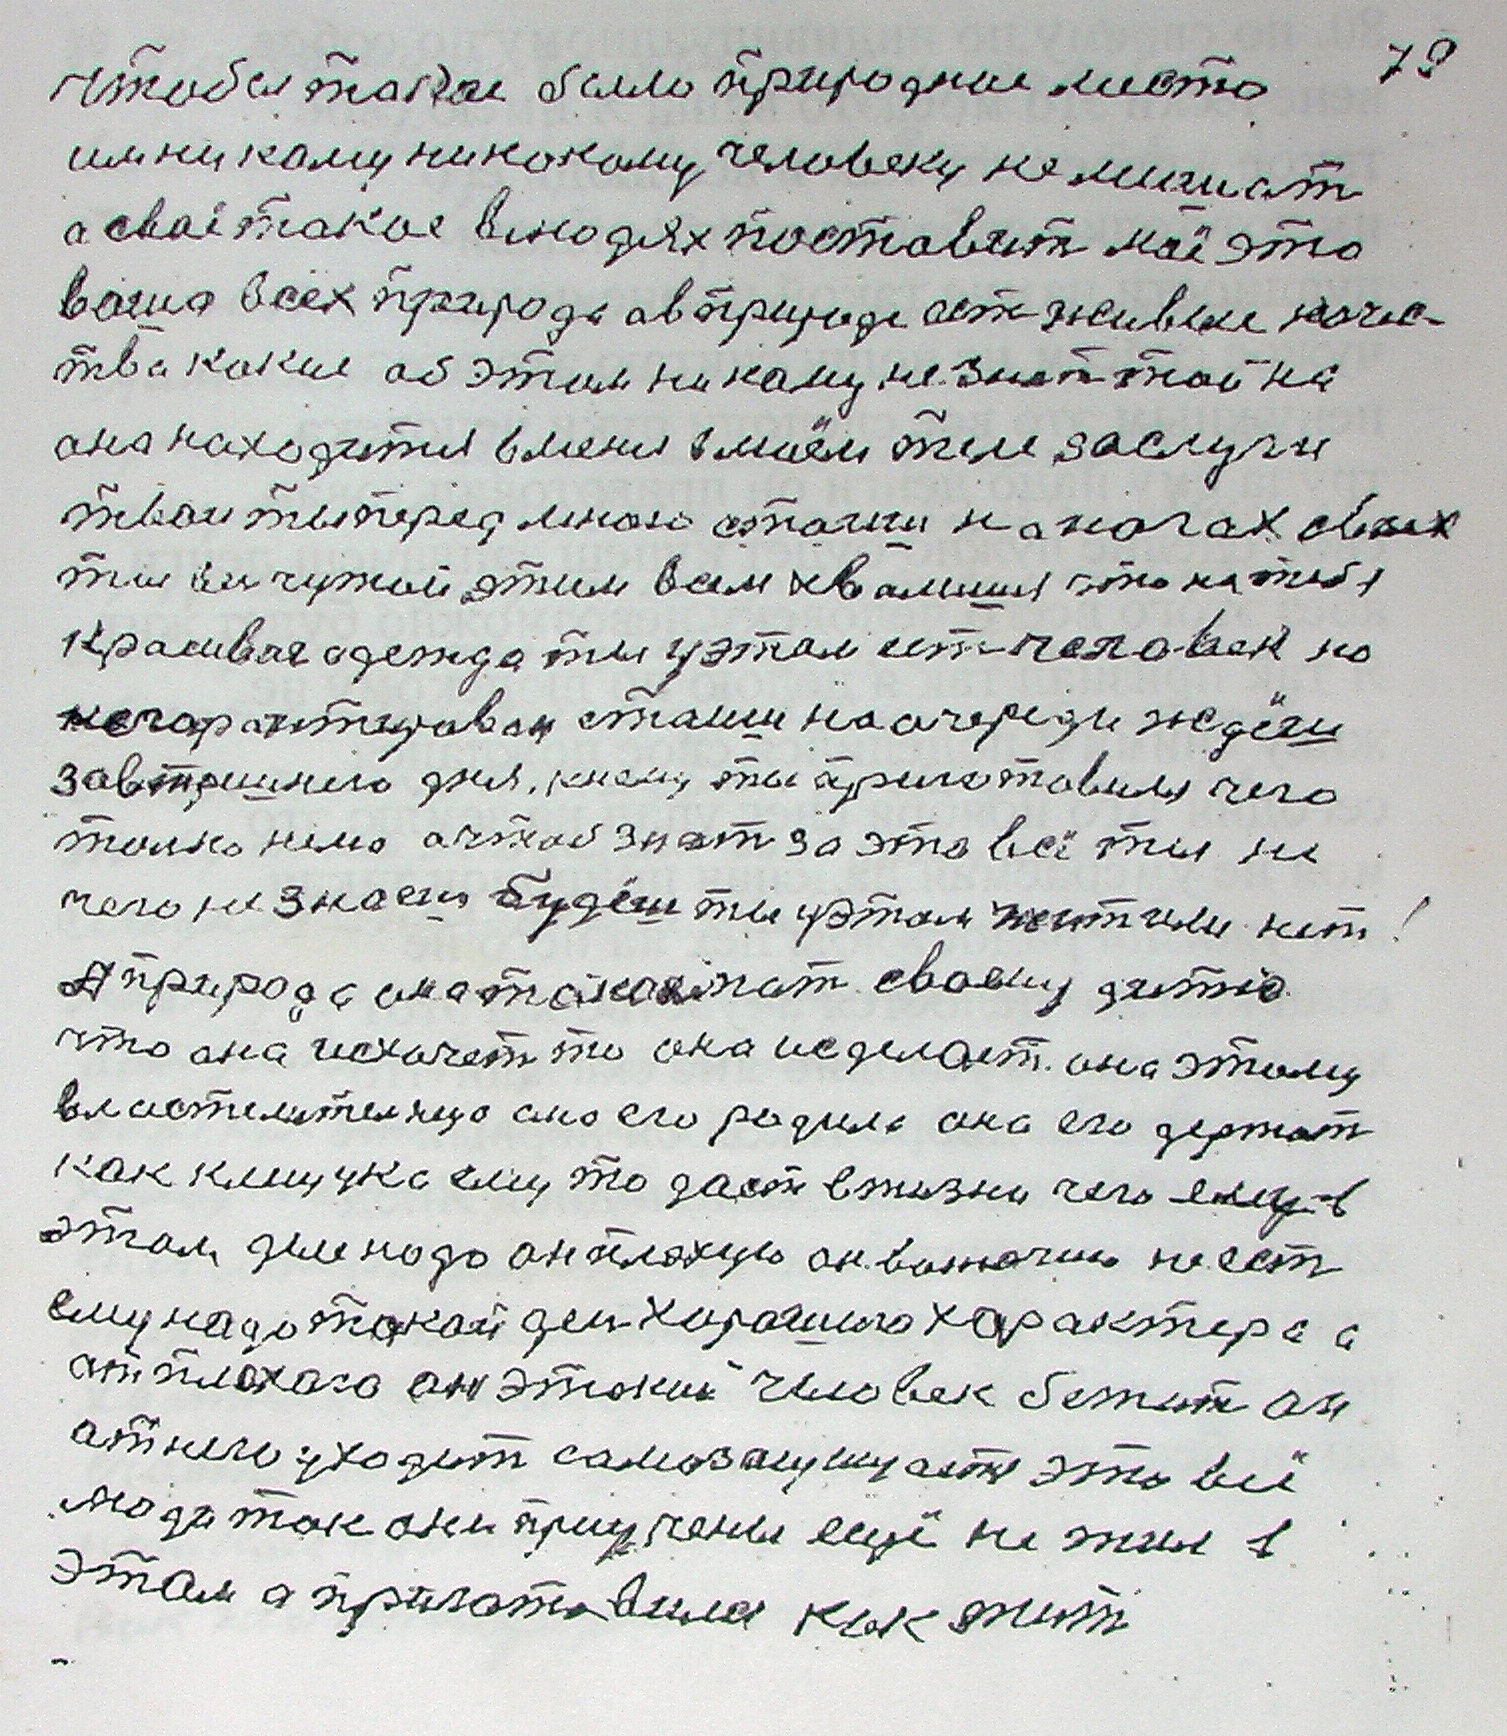 79
чтобы такое было природное место
им никаму никокому человеку не мишат
а сваё такое в людях поставит маё это
ваша всех природа а в природе ест живые качес-
тва какие аб этам никаму не знат тайна
ана находится в меня в маём теле заслуги
тваи ты перед мною стаиш на ногах сваих
ты вы чужой этим всем хвалишся что на тибя
красивая одежда ты у этом ест человек но
не гарантирован стаиш на очереди ждёш
завтришнего дня, кнему ты приготовился чего
только нимо а чтоб знат за это всё ты ни
чего не знаеш будеш ты у этом жит или нет!
А природа она такая мат своему дитю
что она исхочет то она исделает. она этому
властелителницо она его радила она его держит
как клиушка ему то даст в жизни чего ему в
этом деле надо он плохую он воточию не ест
ему надо такой ден хорошиго характера а
от плохого он этокий человек бежит он
от него уходит самозащищается это всё
люди так они приучены ещё не жил в
этом а приготовился как жит